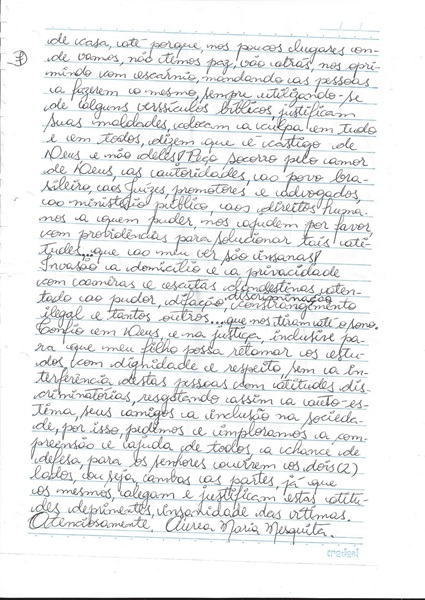 de casa, até porque, nos poucos lugares on-
de vamos, não temos paz, vão atrás, nos opri-
mindo com escarnio, mandando as pessoas
a fazerem o mesmo, sempre utilizando-se
de alguns verssículos bíblicos, justificam
suas maldades, colocam a culpa em tudo
e em todos, dizem que é castigo de
Deus, e não deles! Peço socorro pelo amor
de Deus, as autoridades, ao povo bra-
sileiro, aos juízes, promotores e advogados,
ao ministério público, aos direitos huma-
nos a quem puder, nos ajudem por favor,
com providências para solucionar tais ati-
tudes... que ao meu ver são insanas!
Invasão a domicílio e a privacidade
com cameras e escutas clandestinas, aten-
tado ao pudor, difação, discriminação, constrangimento
ilegal e tantos outros... que nos tiram até o sono.
Confio em Deus, e na justiça, inclusive pa-
ra que meu filho possa retomar os estu-
dos, com dignidade e respeito, sem a in-
terferência destas pessoas com atitudes dis-
criminatórias, resgatando assim a auto-es-
tima, seus amigos, a inclusão na socieda-
de, por isso, pedimos e imploramos a com-
preensão e ajuda de todos, a chance de
defesa, para os senhores ouvirem os dois (2)
lados, ou seja, ambas as partes, já que
os mesmos, alegam e justificam estas atitu-
des deprimentes, insanidade das vítimas.
Atenciosamente, Áurea Maria Mesquita.
credeal